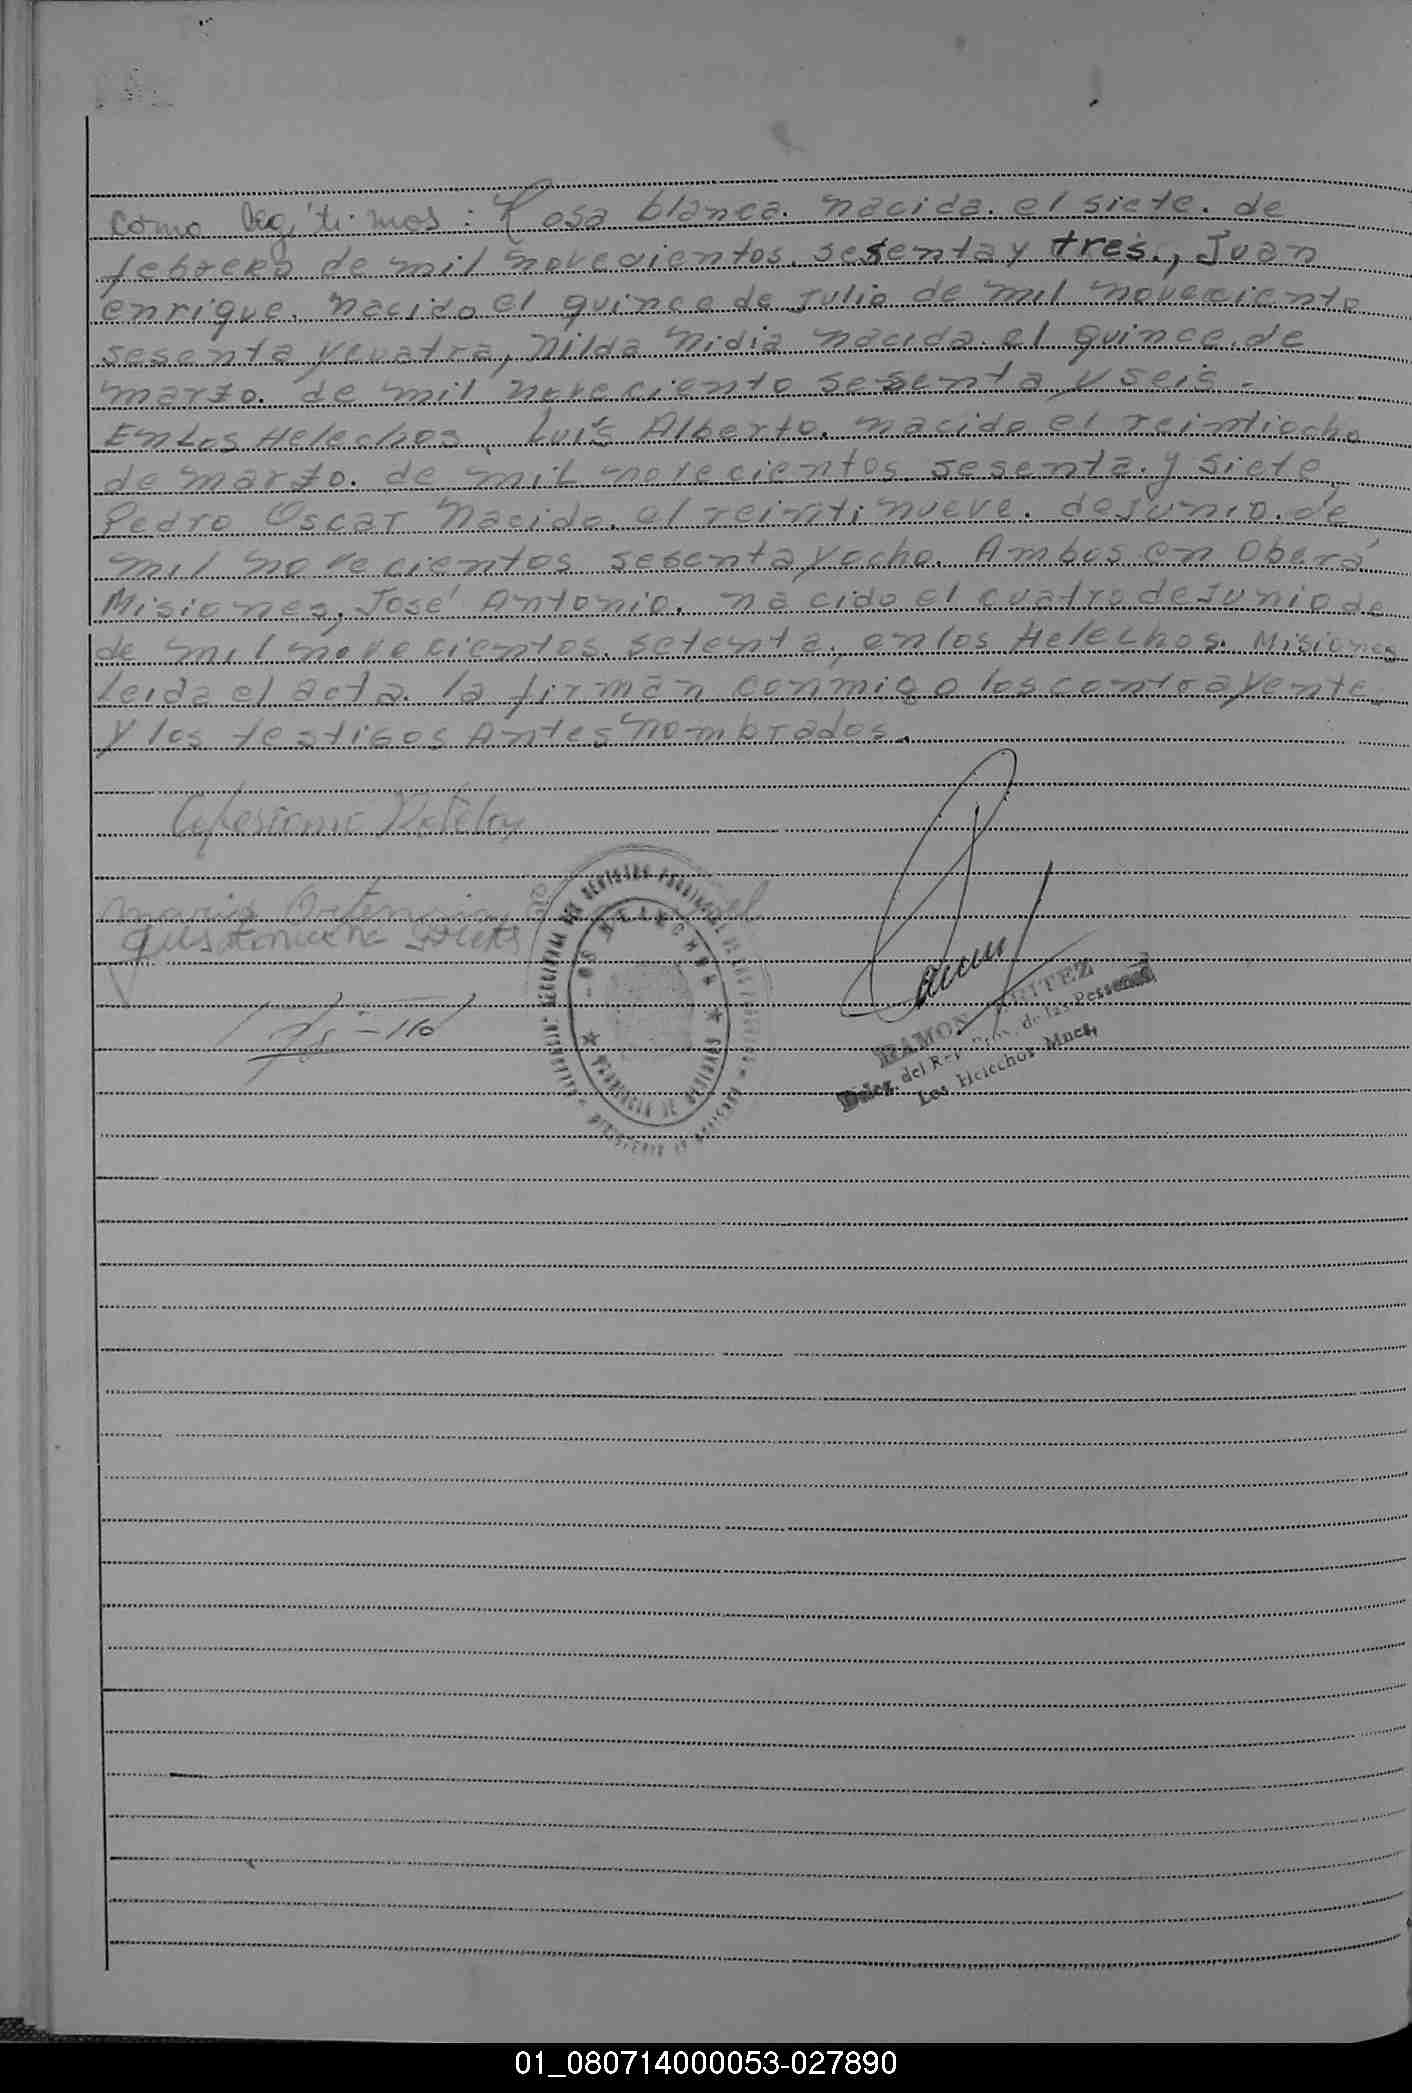 como legítimos: Rosa blanca. nacida. el siete. de
febrero de mil novecientos. sesenta y tres., Juan
enrique. nacido el quince de Julio de mil noveciento
sesenta ycuatro, nilda nidia nacida. el quince. de
marzo. de mil noveciento sesenta y seis.
En Los Helechos, Luís Alberto. nacido el veintiocho
de marzo. de mil novecientos. sesenta. y siete,
Pedro Oscar nacido. el veintinueve. de Junio. de
mil novecientos sesenta y ocho. Ambos en Oberá
Misiones, José Antonio. nacido el cuatro de Junio de
de mil novecientos. setenta., en los Helechos. Misiones
Leida el acta. la firman conmigo los contrayente
y los testigos Antes nombrados.
LOS HELECHOS
PROVINCIA DE MISIONES
RAMON
Deleg. del Reg. Prov. de las Personas
Los Helechos Mnes.
01_080714000053-027890